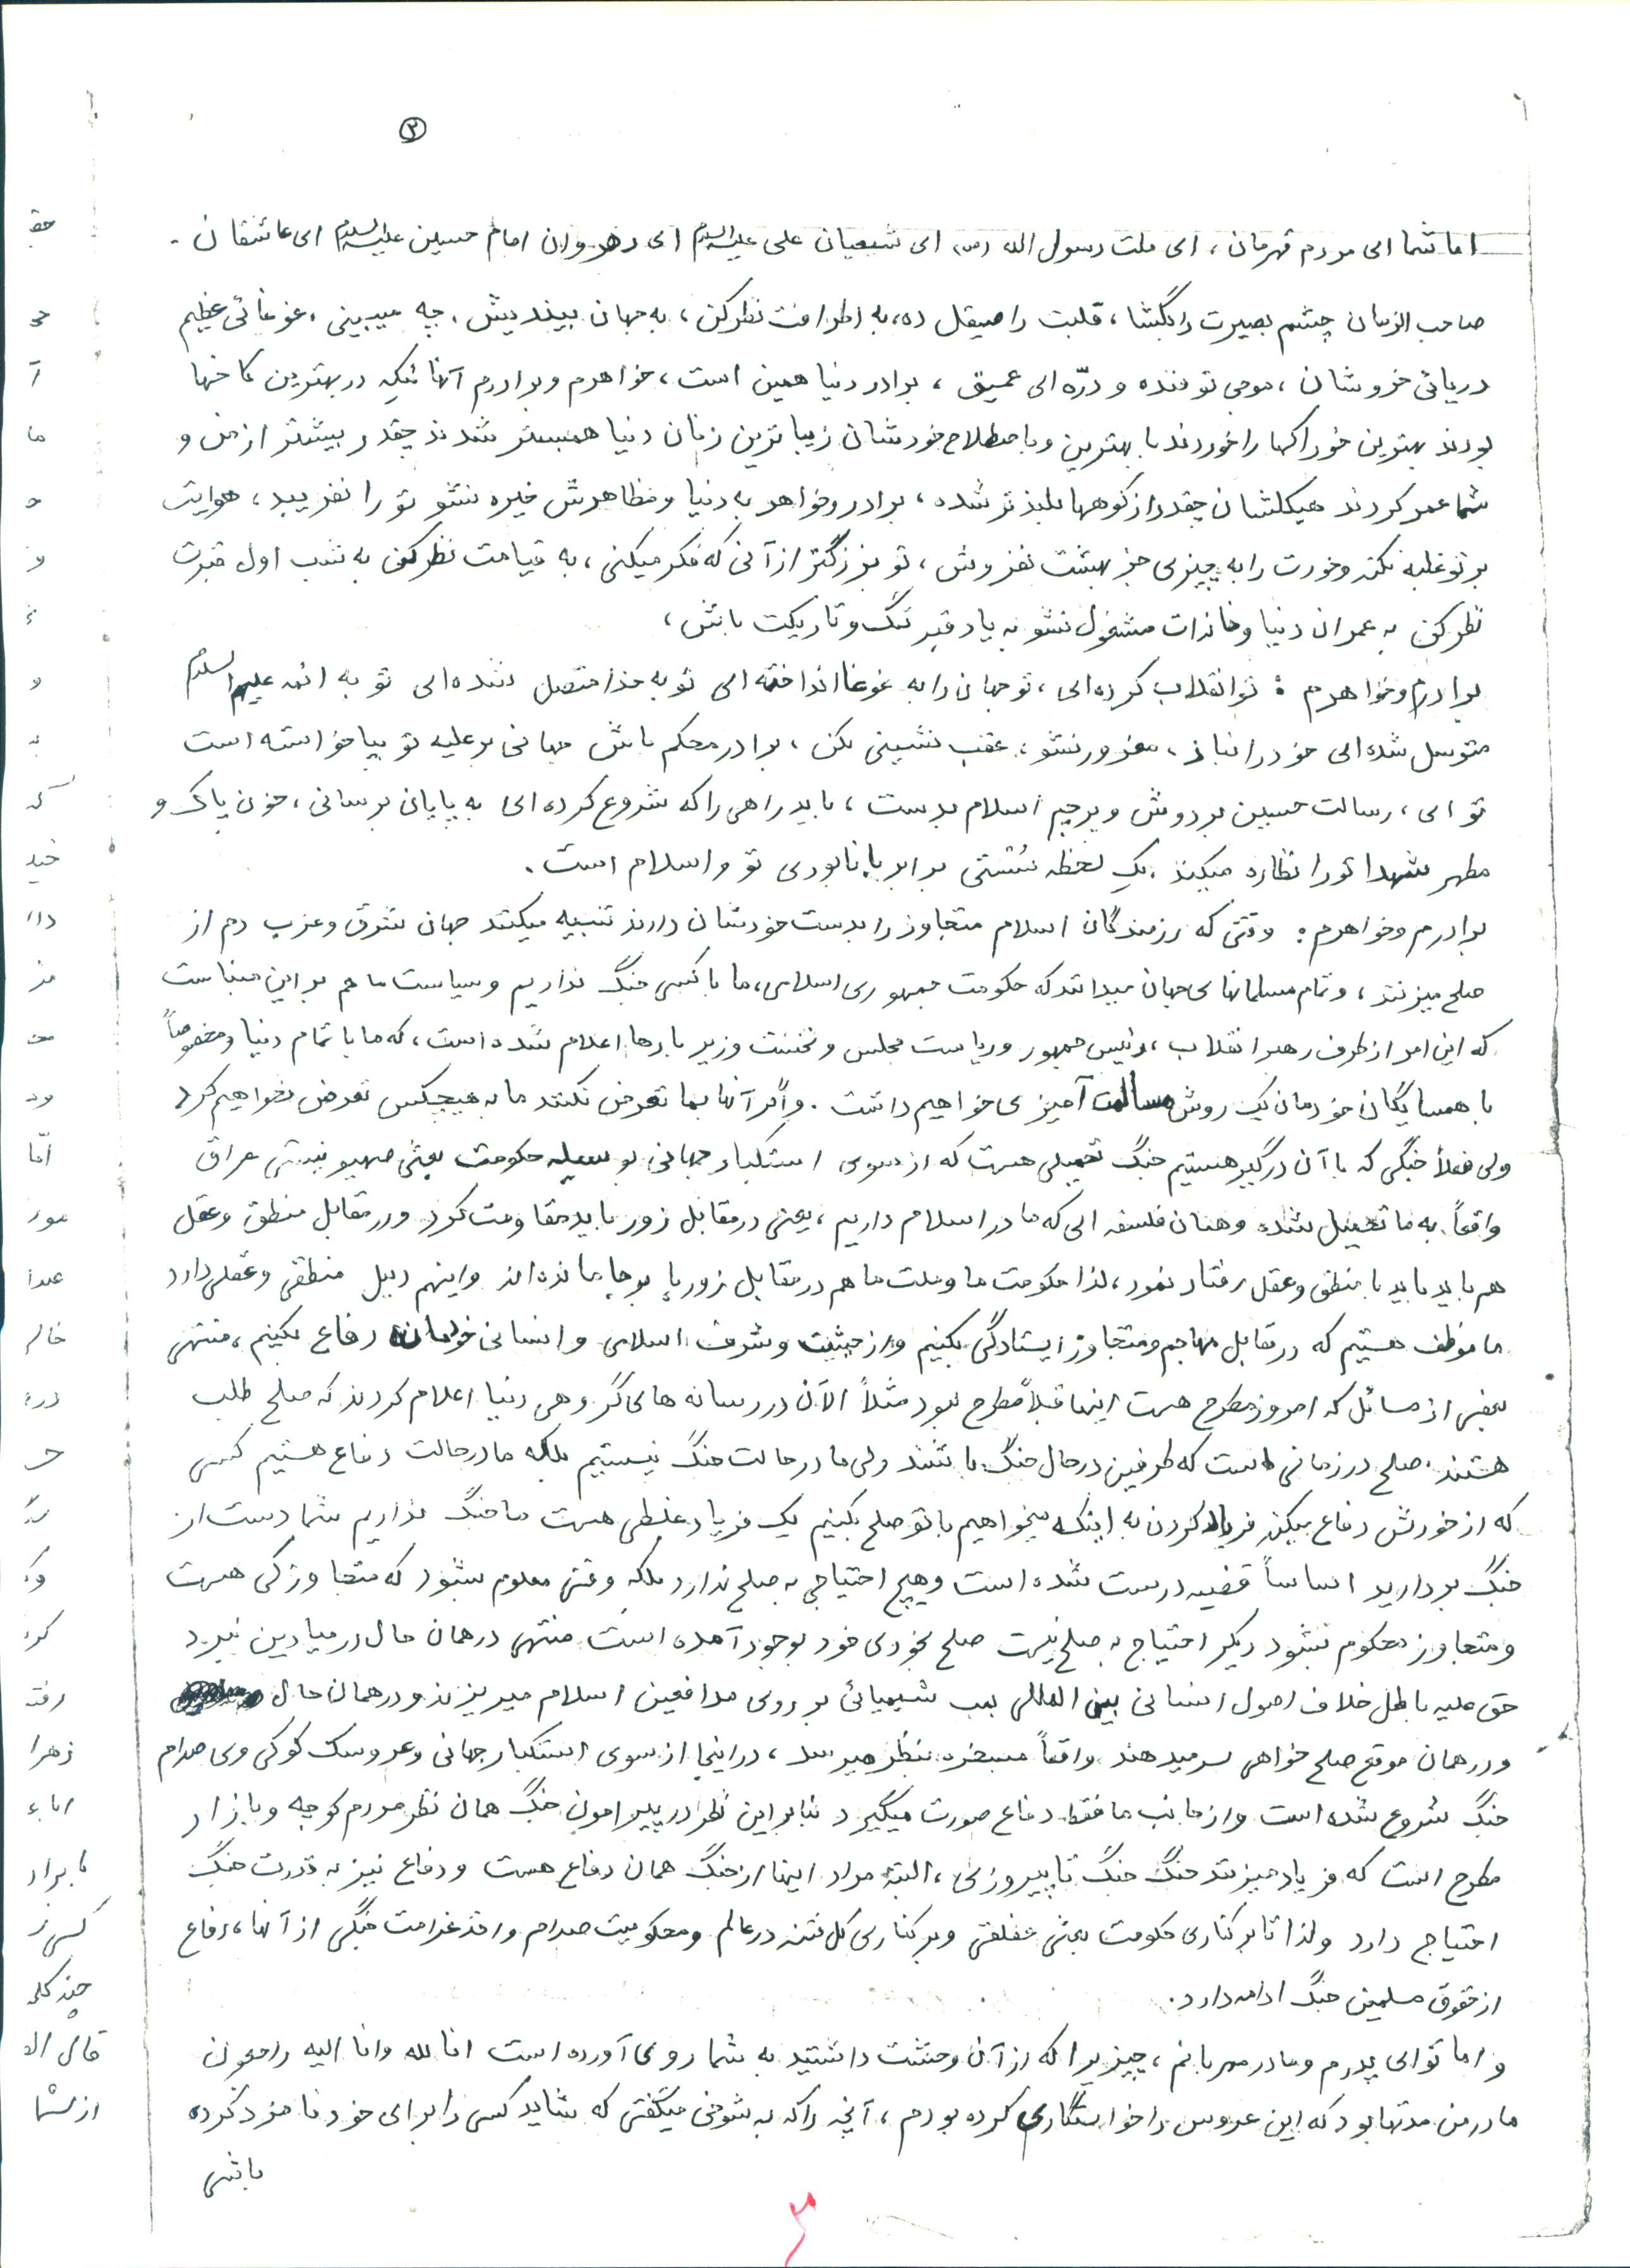 ۲
اما شما ای مردم قهرمان، ای ملت رسول الله (ص) ای شیعیان علی علیه السلام ای رهروان امام حسین علیه السلام ای عاشقان
صاحب الزمان چشم بصیرت را بگشا، قلبت را صیقل ده، به اطرافت نظر کن، به جهان بیندیش، چه میبینی، غوغائی عظیم
دریائی خروشان، موجی توفنده و درّه ای عمیق، برادر دنیا همین است، خواهرم و برادرم آنانیکه در بهترین کاخها
بودند بهترین خوراکها را خوردند با بهترین و باصطلاح خودشان زیباترین زنان دنیا همبستر شدند چقدر بیشتر از من و
شما عمر کردند هیکلشان چقدر از کوهها بلندتر شده، برادر و خواهر به دنیا و مظاهرش خیره نشو تو را نفریبد، هوایت
بر تو غلبه نکند و خودت را به چیزی جز بهشت نفروش، تو بزرگتر از آنی که فکر میکنی، به قیامت نظر کن به شب اول قبرت
نظر کن به عمران دنیا و خانه‌ات مشغول نشو به یاد قبر تنگ و تاریکت باش،
برادرم و خواهرم: تو انقلاب کرده‌ای، تو جهان را به غوغا انداخته ای تو به خدا متصل شده‌ای تو به ائمه علیهم السلام
متوسل شده‌ای خود را نباز، مغرور نشو، عقب نشینی مکن، برادر محکم باش جهانی بر علیه تو بپا خواسته است
تو ای، رسالت حسین بر دوش و پرچم اسلام بدست، باید راهی را که شروع کرده‌ای به پایان برسانی، خون پاک و
مطهر شهدا تو را نظاره میکند. یک لحظه سُستی برابر با نابودی تو و اسلام است.
برادرم و خواهرم: وقتی که رزمندگان اسلام متجاوز را بدست خودشان دارند تنبیه میکنند جهان شرق و غرب دم از
صلح میزنند، و تمام مسلمانهای جهان میدانند که حکومت جمهوری اسلامی، ما با کسی جنگ نداریم و سیاست ما هم بر این مبناست
که این امر از طرف رهبر انقلاب، رئیس جمهور و ریاست مجلس و نخست وزیر بارها اعلام شده است، که ما با تمام دنیا و مخصوصاً
با همسایگان خودمان یک روش مسالمت آمیزی خواهیم داشت. و اگر آنها بما تعرض نکنند ما به هیچکس تعرض نخواهیم کرد
ولی فعلاً جنگی که با آن درگیر هستیم جنگ تحمیلی هست که از سوی استکبار جهانی بوسیله حکومت بعثی صهیونیستی عراق
واقعاً به ما تحمیل شده و همان فلسفه ای که ما در اسلام داریم، یعنی در مقابل زور باید مقاومت کرد و در مقابل منطق و عقل
هم باید باید با منطق و عقل رفتار نمود، لذا حکومت ما و ملت ما هم در مقابل زور پا برجا مانده‌اند و اینهم دلیل منطقی و عقلی دارد
ما موظف هستیم که در مقابل مهاجم و متجاوز ایستادگی بکنیم و از حیثیت و شرف اسلامی و انسانی خودمان دفاع بکنیم، منتهی
بعضی از مسائل که امروز مطرح هست اینها قبلاً مطرح بود مثلاً الآن در رسانه های گروهی دنیا اعلام کردند که صلح طلب
هستند. صلح در زمانی است که طرفین در حال جنگ باشند ولی ما در حالت جنگ نیستیم بلکه ما در حالت دفاع هستیم کسی
که از خودش دفاع میکند فریاد کردن به اینکه میخواهیم با تو صلح بکنیم یک فریاد غلطی هست ما جنگ نداریم شما دست از
جنگ بردارید اساساً قضیه درست شده است و هیچ احتیاجی به صلح ندارد بلکه وقتی معلوم بشود که متجاوز کی هست
و متجاوز محکوم بشود دیگر احتیاج به صلح نیست صلح بخودی خود بوجود آمده است. منتهی در همان حال در میادین نبرد
حق علیه باطل خلاف اصول انسانی بین المللی بمب شیمیائی بر روی مدافعین اسلام میریزند و در همان حال
و در همان موقع صلح خواهی سر میدهند واقعاً مسخره بنظر میرسد، در اینجا از سوی استکبار جهانی و عروسک کوکی وی صدام
جنگ شروع شده است و از جانب ما فقط دفاع صورت میگیرد بنابراین نظر در پیرامون جنگ همان نظر مردم کوچه و بازار
مطرح است که فریاد میزنند جنگ جنگ تا پیروزی، البته مراد اینها از جنگ همان دفاع هست و دفاع نیز به قدرت جنگ
احتیاج دارد ولذا تا برکناری حکومت بعثی عفلقی و برکناری کل فتنه در عالم و محکومیت صدام و اخذ غرامت جنگی از آنها، دفاع
از حقوق مسلمین جنگ ادامه دارد.
و اما تو ای پدرم و مادر مهربانم، چیزیرا که از آن وحشت داشتید به شما روی آورده است انا لله و انا الیه راجعون
مادر من مدتها بود که این عروس را خواستگاری کرده بودم، آنچه را که به شوخی میگفتی که شاید کسی را برای خود نامزد کرده
باشی
۳